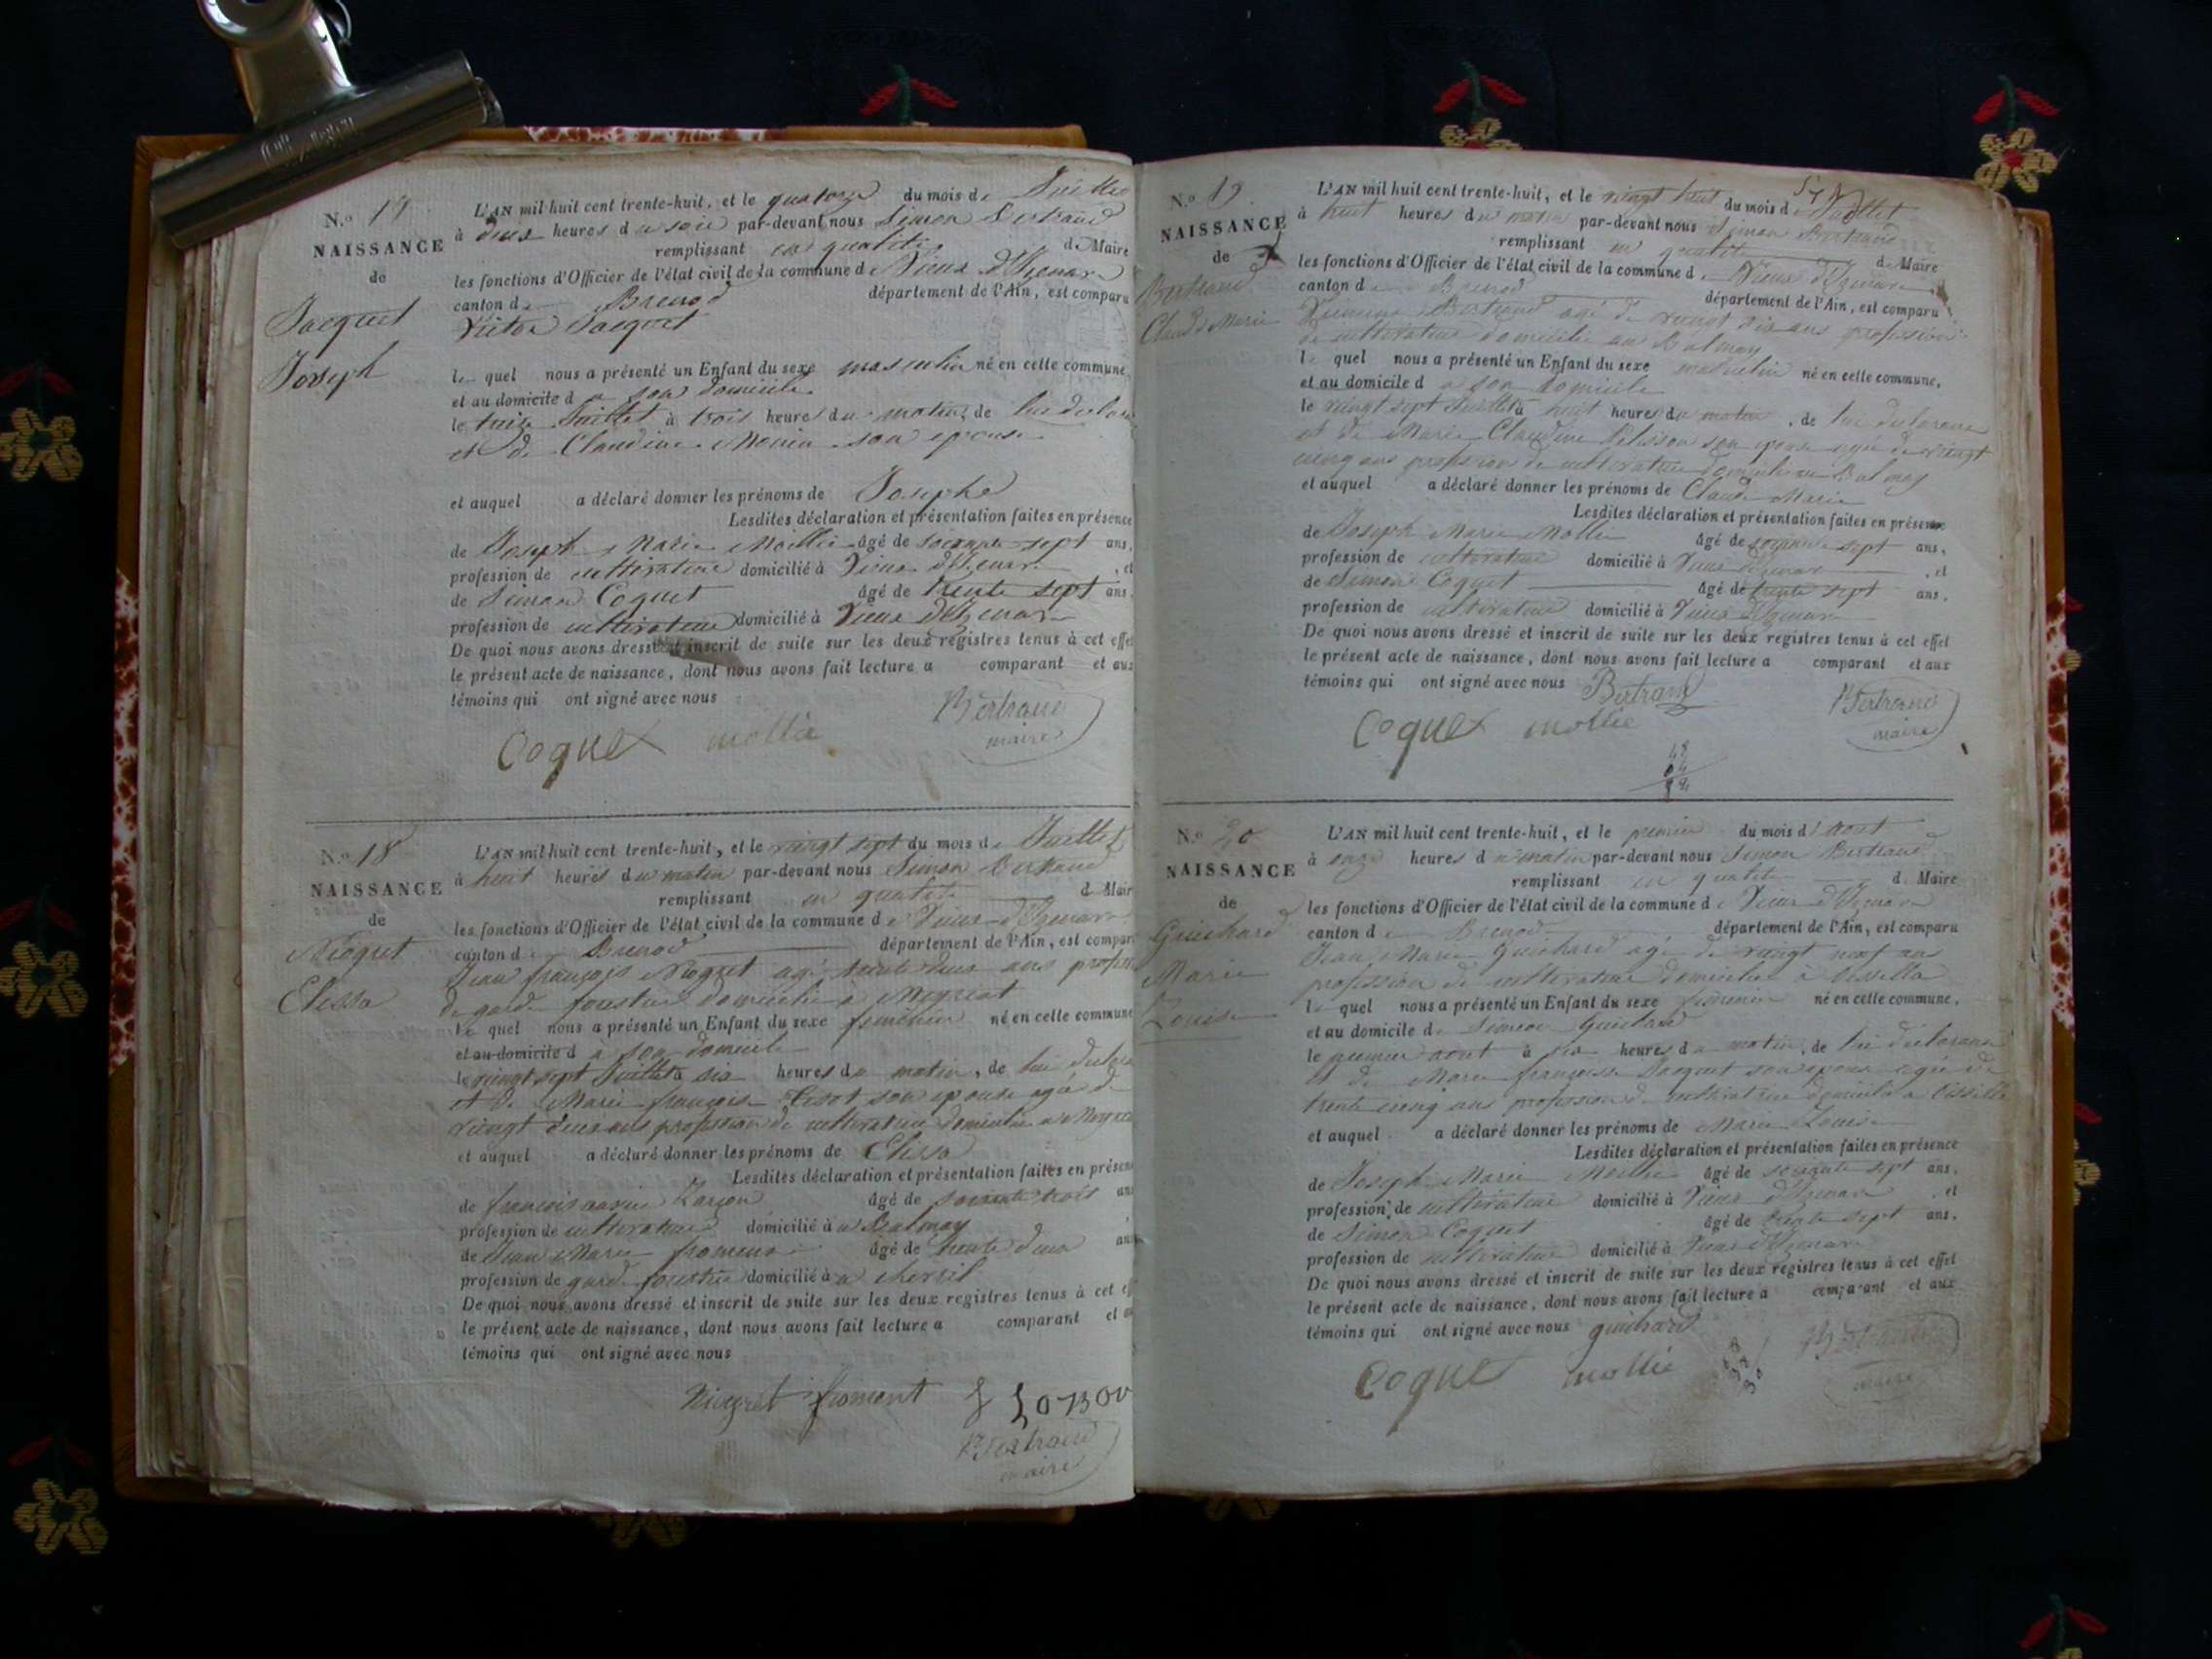 N.o 17
NAISSANCE
de
Jacquet
Joseph
L'AN mil huit cent trente-huit, et le quatorze du mois de Juillet
à deux heures du soir par-devant nous Simon Bertrand
remplissant en qualité de Maire
les fonctions d'Officier de l'état civil de la commune de Vieux d'Izenave
canton de Brenod département de l'Ain, est comparu
Victor Jacquet
le quel nous a présenté un Enfant du sexe masculin né en cette commune,
et au domicile d a son domicile
le treize Juillet à trois heure du matin, de lui
et de Claudine son epouse
et auquel a déclaré donner les prénoms de Joseph
Lesdites déclaration et présentation faites en présence
de Joseph Marie Mollie âgé de soixante-sept ans,
profession de cultivateur domicilié à Vieux d'Izenave, et
de Simon Coquet âgé de trente sept ans,
profession de cultivateur domicilié à Vieux d'Izenave
De quoi nous avons dressé et inscrit de suite sur les deux registres tenus à cet effet
le présent acte de naissance, dont nous avons fait lecture a comparant et aux
témoins qui ont signé avec nous
Coquet mollie Bertrand
maire
N.o 18
NAISSANCE
de
Niogret
Elissa
L'AN mil huit cent trente-huit, et le vingt sept du mois de Juillet
à huit heures du matin par-devant nous Simon Bertrand
remplissant en qualité d Mair
les fonctions d'Officier de l'état civil de la commune de Vieux d'Izenave
canton de Brenod département de l'Ain, est compar
Jean françois Niogret agé trente deux ans profess
de garde forestier domicilié à Meyriat
le quel nous a présenté un Enfant du sexe feminin né en cette commune
et au domicile d a son domicile
le vingt sept Juillet à six heures du matin, de lui
et de Marie françoise son epouse agée de
vingt deux ans profession de cultivatrice domiciliée a
et auquel a déclaré donner les prénoms de Elissa
Lesdites déclaration et présentation faites en présen
de françois âgé de soixante trois ans
profession de cultivateur domicilié à Balmay
de Jean Marie âgé de trente deux ans
profession de garde forestier domicilié à
De quoi nous avons dressé et inscrit de suite sur les deux registres tenus à cet ef
le présent acte de naissance, dont nous avons fait lecture a comparant et au
témoins qui ont signé avec nous
Niogret froment
Bertrand
maire
N.o 19
NAISSANCE
de
Bertrand
Claude Marie
L'AN mil huit cent trente-huit, et le vingt huit du mois de Juillet
à huit heures du matin par-devant nous Simon Bertrand
remplissant en qualité de Maire
les fonctions d'Officier de l'état civil de la commune de Vieux d'Izenave
canton de Brenod département de l'Ain, est comparu
Bertrand agé de vingt six ans profession
de cultivateur domicilié au Balmay
le quel nous a présenté un Enfant du sexe masculin né en cette commune,
et au domicile d a son domicile
le vingt sept Juillet à huit heures du matin, de lui declarant
et de Marie Claudine Pelisson son epouse agée de vingt
cinq ans profession de cultivatrice domiciliée au Balmay
et auquel a déclaré donner les prénoms de Claude Marie
Lesdites déclaration et présentation faites en présence
de Joseph Marie Mollie âgé de soixante sept ans,
profession de cultivateur domicilié à Vieux d'Izenave, et
de Simon Coquet âgé de trente sept ans,
profession de cultivateur domicilié à Vieux d'Izenave
De quoi nous avons dressé et inscrit de suite sur les deux registres tenus à cet effet
le présent acte de naissance, dont nous avons fait lecture a comparant et aux
témoins qui ont signé avec nous Bertrand
Coquet mollie Bertrand
maire
N.o 20
NAISSANCE
de
Guichard
Marie
Louise
L'AN mil huit cent trente-huit, et le premier du mois d'aout
à onze heures du matin par-devant nous Simon Bertrand
remplissant en qualité de Maire
les fonctions d'Officier de l'état civil de la commune de Vieux d'Izenave
canton de Brenod département de l'Ain, est comparu
Jean Marie Guichard agé de vingt neuf ans
profession de cultivateur domicilié à
le quel nous a présenté un Enfant du sexe feminin né en cette commune,
et au domicile de Simeon Guichard
le premier aout à six heures du matin, de lui declarant
et de Marie françoise Jacquet son epouse agée de
trente cinq ans profession de cultivatrice domiciliée a
et auquel a déclaré donner les prénoms de Marie Louise
Lesdites déclaration et présentation faites en présence
de Joseph Marie Mollie âgé de soixante sept ans,
profession de cultivateur domicilié à Vieux d'Izenave, et
de Simon Coquet âgé de trente sept ans,
profession de cultivateur domicilié à Vieux d'Izenave
De quoi nous avons dressé et inscrit de suite sur les deux registres tenus à cet effet
le présent acte de naissance, dont nous avons fait lecture a comparant et aux
témoins qui ont signé avec nous guichard
Coquet mollie Bertrand
maire